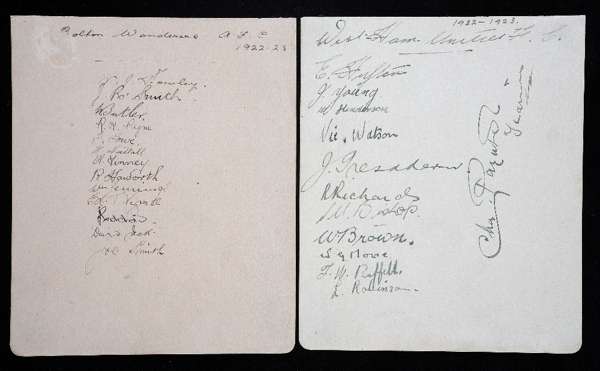 Bolton Wanderers A F C
1922-23
J R Smith
W Butler
R H Pym
Lowe
H Nuttall
A Finney
R Haworth
W Jennings
David Jack
Joe Smith
1922-1923.
West Ham United F. C.
E. Hufton
J Young
W Henderson
Vic. Watson
J. Tresadern
R Richards
S. M. Bishop.
W Brown.
Syd Moore
F. W. Piffett.
L. Robinson.
Chas Paynter
Trainer